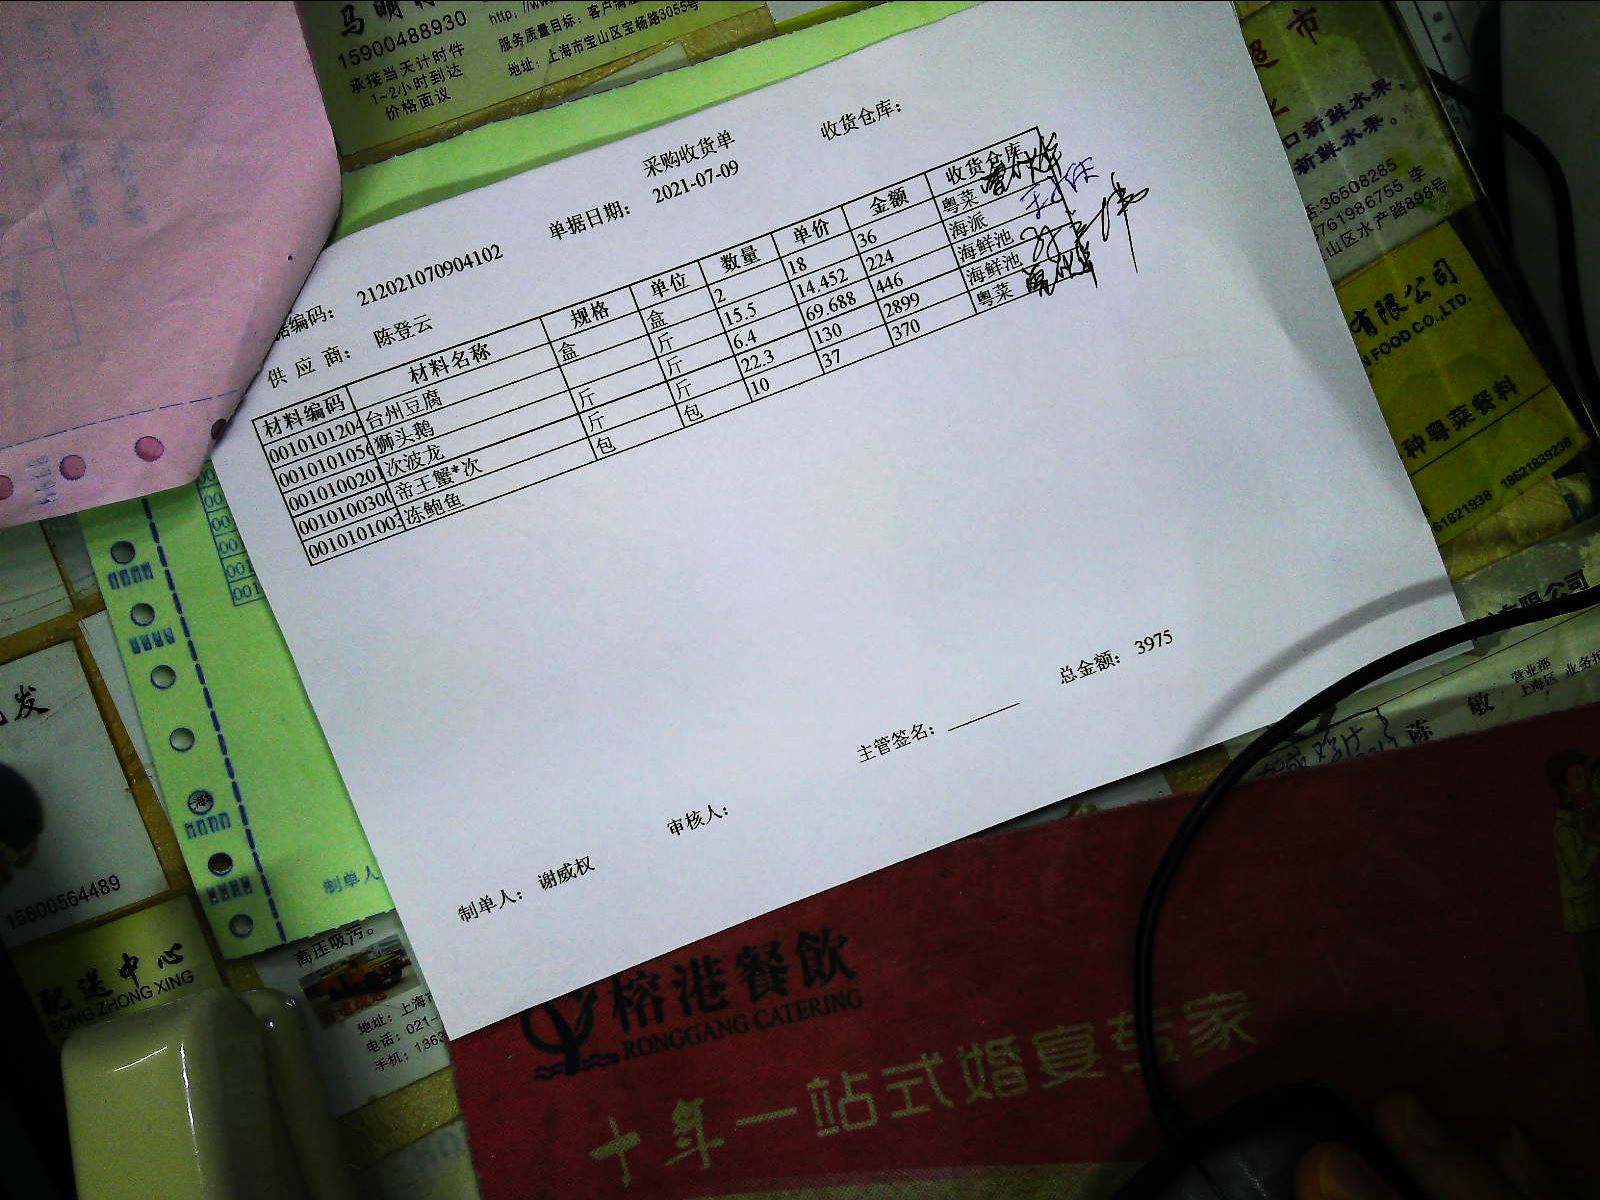 15900488930
承接当天计时件
1~2小时到达
价格面议
服务质量目标：客户满意
地址：上海市宝山区宝杨路3055号
采购收货单
收货仓库：
单据日期： 2021-07-09
据编码： 212021070904102
供 应 商： 陈登云
材料编码 材料名称 规格 单位 数量 单价 金额 收货仓库
001010120 台州豆腐 盒 盒 2 18 36 粤菜
00101010 狮头鹅 斤 15.5 14.452 224 海派
001010020 次波龙 斤 斤 6.4 69.688 446 海鲜池
00101003 帝王蟹*次 斤 斤 22.3 130 2899 海鲜池
0010101003 冻鲍鱼 包 包 10 37 370 粤菜
总金额： 3975
主管签名：
审核人：
制单人： 谢威权
制单人
超 市
口新鲜水果、
新鲜水果。
:36508285
761986755 李
山区水产路898号
有限公司
N FOOD CO.,LTD.
种粤菜餐料
61821938 18621839238
有限公司
营业部
上海区
陈 敏
15800564489
配送中心
SONG ZHONG XING
高压吸污。
地址：上海市
电话：021-
手机：1363
榕港餐飲
RONGGANG CATERING
十年一站式婚宴专家